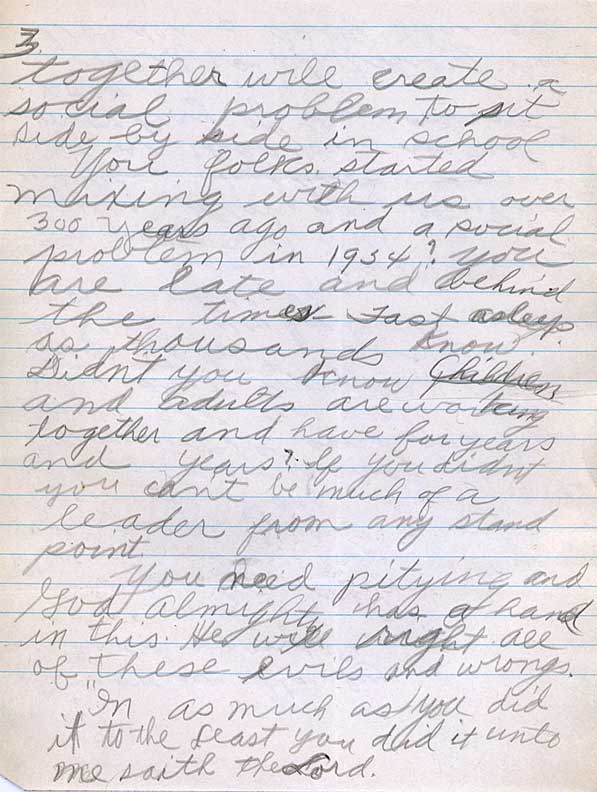 3
together will create a
social problem to sit
side by side in school
You folks started
mixing with us over
300 years ago and a social
problem in 1934? You
are late and behind
the times fast asleep
as thousands know.
Didnt you know Children
and adults are working
together and have for years
and years? If you didnt
you cant be much of a
leader from any stand
point.
You need pitying and
God Almighty has a hand
in this. He will right all
of these evils and wrongs.
"In as much as you did
it to the least you did it unto
me saith the Lord.